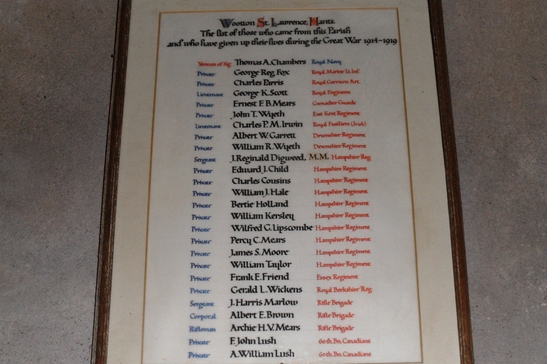 Wootton St. Lawrence, Hants.
The list of those who came from this Parish
and who have given up their lives during the Great War 1914-1919
Yeoman of Sig. Thomas A. Chambers Royal Navy
Private George Reg. Fox Royal Marine Lt. Inf.
Private Charles Parris Royal Garrison Art.
Lieutenant George K. Scott Royal Engineers
Private Ernest F. B. Mears Grenadier Guards
Private John T. Wyeth East Kent Regiment
Lieutenant Charles P. M. Irwin Royal Fusiliers
Private Albert W. Garrett Devonshire Regiment
Private William R. Wyeth Devonshire Regiment
Sergeant J. Reginald Digweed, M.M. Hampshire Reg.
Private Edward J. Child Hampshire Regiment
Private Charles Cousins Hampshire Regiment
Private William J. Hale Hampshire Regiment
Private Bertie Holland Hampshire Regiment
Private William Kersley Hampshire Regiment
Private Wilfred G. Lipscombe Hampshire Regiment
Private Percy C. Mears Hampshire Regiment
Private James S. Moore Hampshire Regiment
Private William Taylor Hampshire Regiment
Private Frank E. Friend Essex Regiment
Private Gerald L. Wickens Royal Berkshire Reg.
Sergeant J. Harris Marlow Rifle Brigade
Corporal Albert E. Brown Rifle Brigade
Rifleman Archie H. V. Mears Rifle Brigade
Private F. John Lush 60th. Bn. Canadians
Private A. William Lush 60th. Bn. Canadians